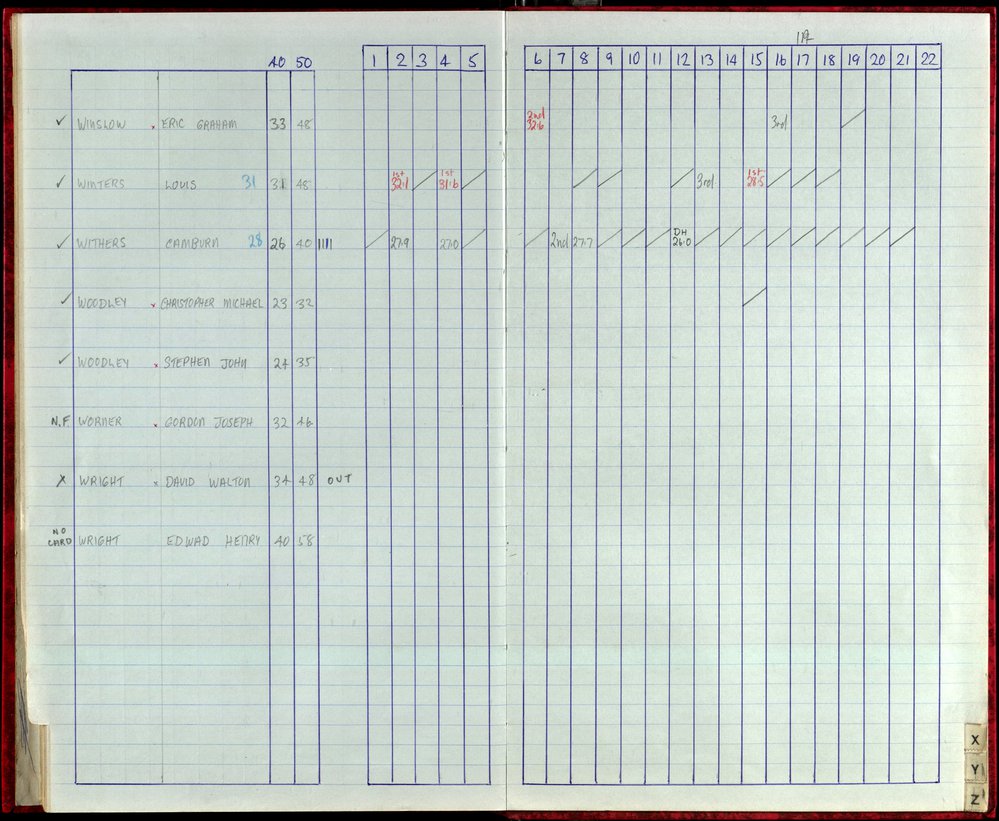 11A
40 50 1 2 3 4 5 6 7 8 9 10 11 12 13 14 15 16 17 18 19 20 21 22
✓ WINSLOW x ERIC GRAHAM 33 48 2nd 32.6 3rd /
✓ WINTERS LOUIS 31 31 48 1st 32.1 / 1st 31.6 / / / / 3rd 1st 28.5 / / /
✓ WITHERS CAMBURN 28 26 40 IIII / 27.9 27.0 / / 2nd 27.7 / / / DH 26.0 / / / / / / / / /
✓ WOODLEY x CHRISTOPHER MICHAEL 23 32 /
✓ WOODLEY x STEPHEN JOHN 24 35
N.F WORNER x GORDON JOSEPH 32 46
X WRIGHT x DAVID WALTON 34 48 OUT
NO CARD WRIGHT EDWAD HENRY 40 58
X
Y
Z